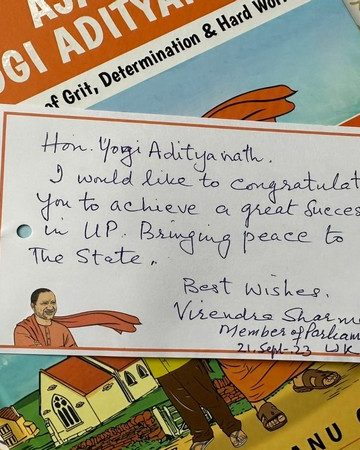 OGI ADITYA
of Grit, Determination & Hard Wor
Hon. Yogi Adityanath.
I would like to congratulat
You to achieve a great Succes
in UP. Bringing peace to
The State.
Best Wishes.
Virendra Sharm
Member of Parliam
21. Sept. 23
ANU